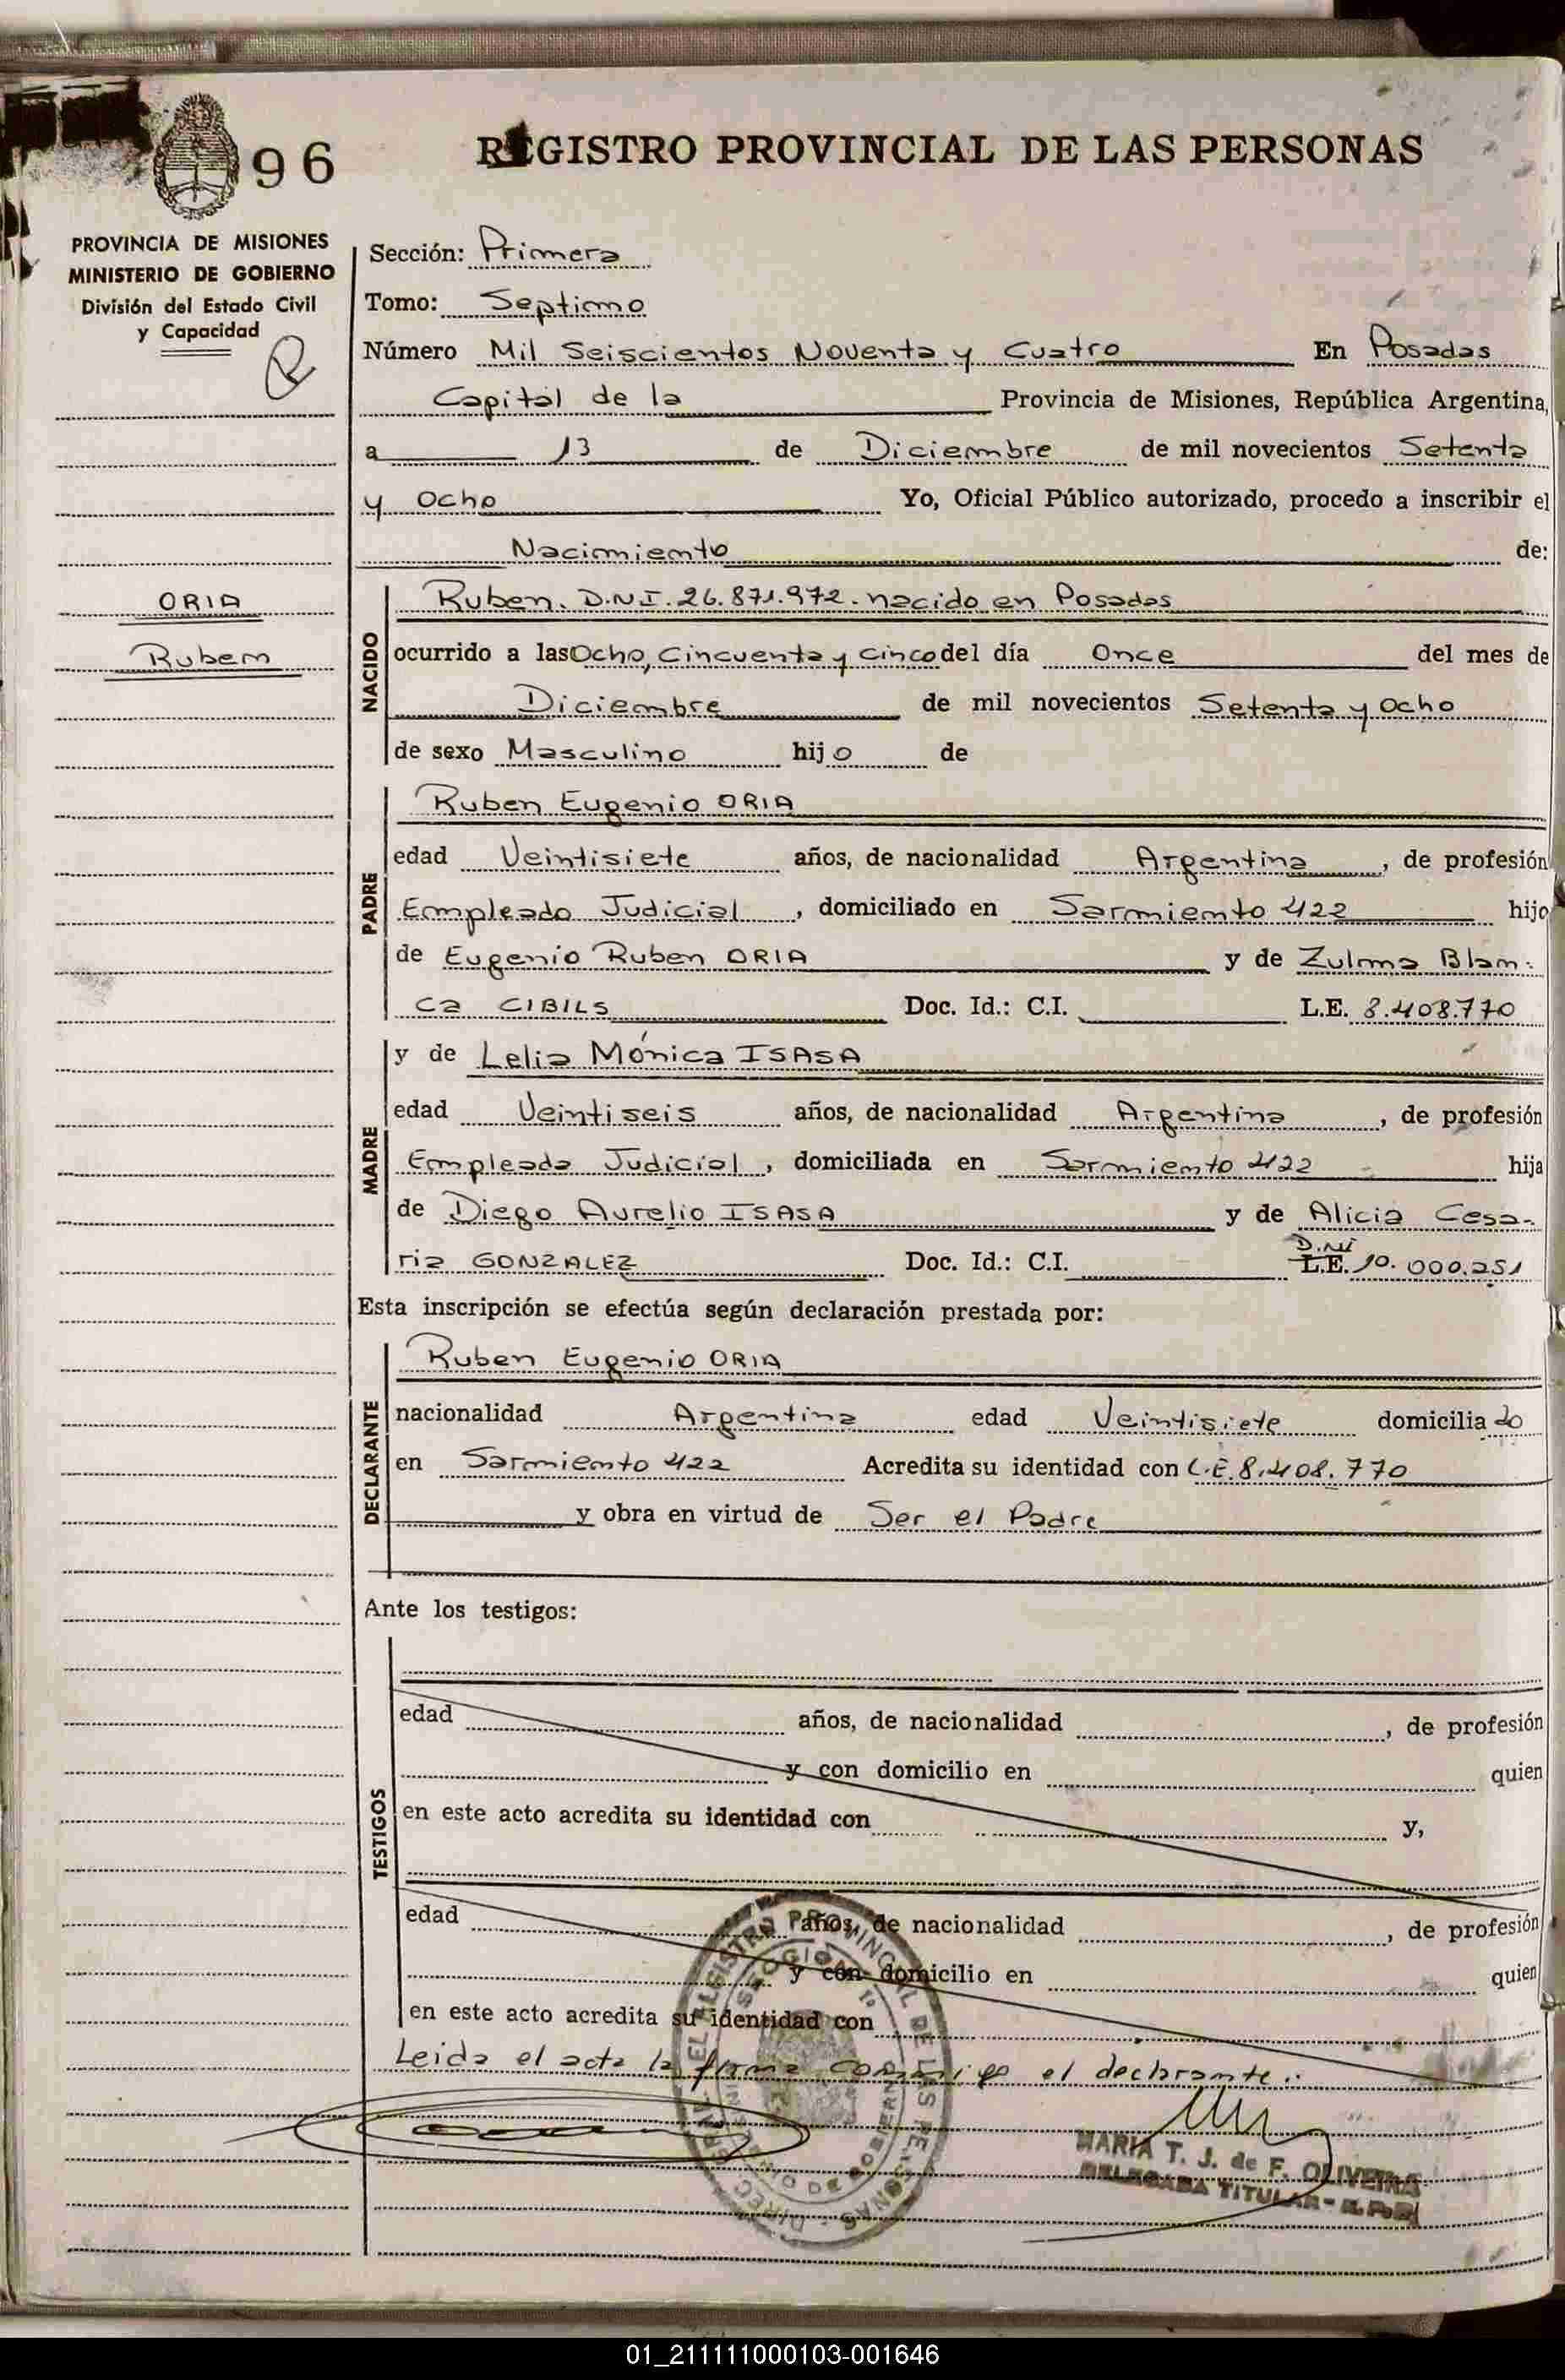 96
REGISTRO PROVINCIAL DE LAS PERSONAS
PROVINCIA DE MISIONES
MINISTERIO DE GOBIERNO
División del Estado Civil
y Capacidad
ORIA
Ruben
Sección: Primera
Tomo: Septimo
Número Mil Seiscientos Noventa y Cuatro En Posadas
Capital de la Provincia de Misiones, República Argentina,
a 13 de Diciembre de mil novecientos Setenta
y Ocho Yo, Oficial Público autorizado, procedo a inscribir el
Nacimiento de:
NACIDO
Ruben. D.N.I. 26.871.972. nacido en Posadas
ocurrido a las Ocho, Cincuenta y cinco del día Once del mes de
Diciembre de mil novecientos Setenta y Ocho
de sexo Masculino hijo de
PADRE
Ruben Eugenio ORIA
edad Veintisiete años, de nacionalidad Argentina, de profesión
Empleado Judicial, domiciliado en Sarmiento 422 hijo
de Eugenio Ruben ORIA y de Zulma Blan-
ca CIBILS Doc. Id.: C.I. L.E. 8.408.770
MADRE
y de Lelia Mónica ISASA
edad Veintiseis años, de nacionalidad Argentina, de profesión
Empleada Judicial, domiciliada en Sarmiento 422 hija
de Diego Aurelio ISASA y de Alicia Cesa-
ria GONZALEZ Doc. Id.: C.I. D.NI L.E. 10.000.251
Esta inscripción se efectúa según declaración prestada por:
DECLARANTE
Ruben Eugenio ORIA
nacionalidad Argentina edad Veintisiete domiciliado
en Sarmiento 422 Acredita su identidad con L.E. 8.408.770
y obra en virtud de Ser el Padre
Ante los testigos:
TESTIGOS
edad años, de nacionalidad , de profesión
y con domicilio en quien
en este acto acredita su identidad con y,
edad años, de nacionalidad , de profesión
y con domicilio en quien
en este acto acredita su identidad con
Leida el acta la firma conmigo el declarante.
REGISTRO PROVINCIAL DE LAS PERSONAS
MARIA T. J. de F. OLIVEIRA
DELEGADA TITULAR
01_211111000103-001646